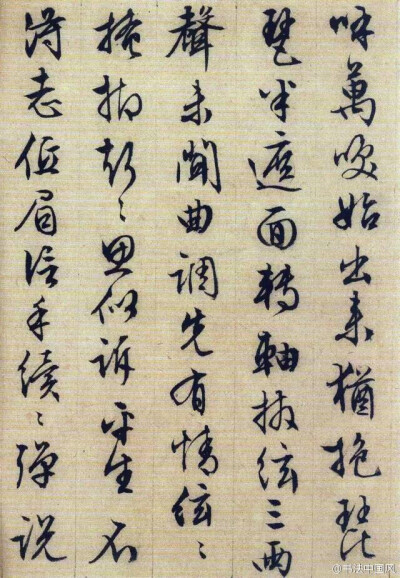 呼萬喚始出来猶抱琵
琶半遮面轉軸撥絃三兩
聲未聞曲調先有情絃〻
掩抑聲〻思似訴平生不
得志低眉信手續〻彈說
@书法中国网